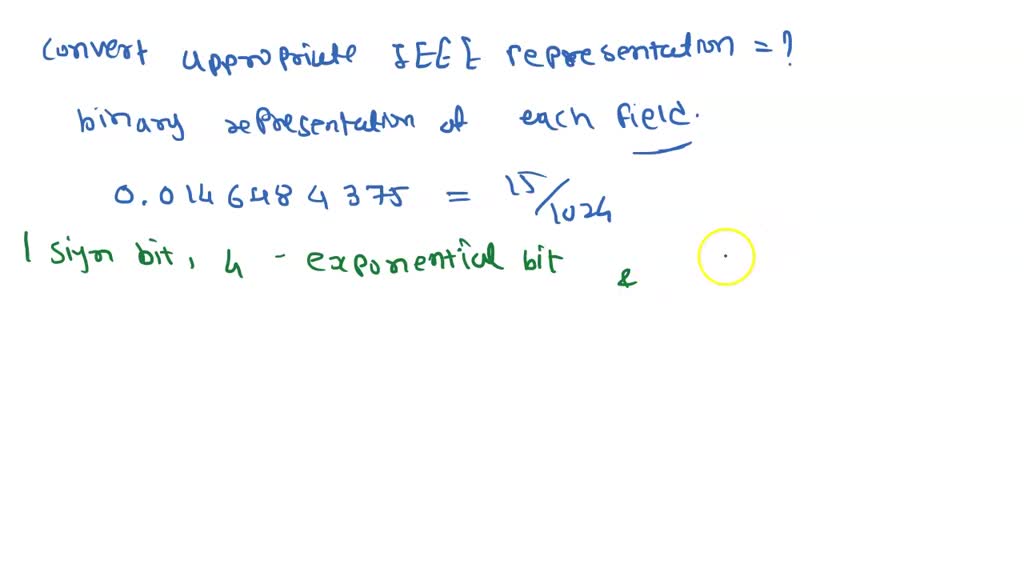 convert appropriate IEEE representation = ?
binary representation of each field.
0.0146484375 = 15/1024
1 sign bit, 4 - exponential bit &